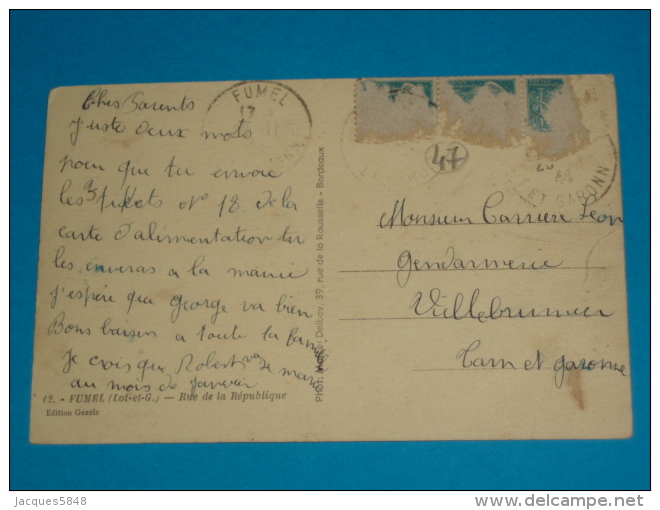 Chers Parents
Juste deux mots
pour que tu envoie
les 3 tickets nº 18 de la
carte d'alimentation tu
les enveras a la mairie
j'espére que George va bien
Bons baisers a toute la famille
Je crois que Robert va se marier
au mois de Janvier
12. - FUMEL (Lot-et-G.) — Rue de la République
Edition Gezels
Delboy, 39, rue de la Rousselle - Bordeaux
FUMEL
47
ET GARONN
Monsieur Carrière Léon
Gendarmerie
Villebrumier
Tarn et garonne
Jacques5848
www.delcampe.net